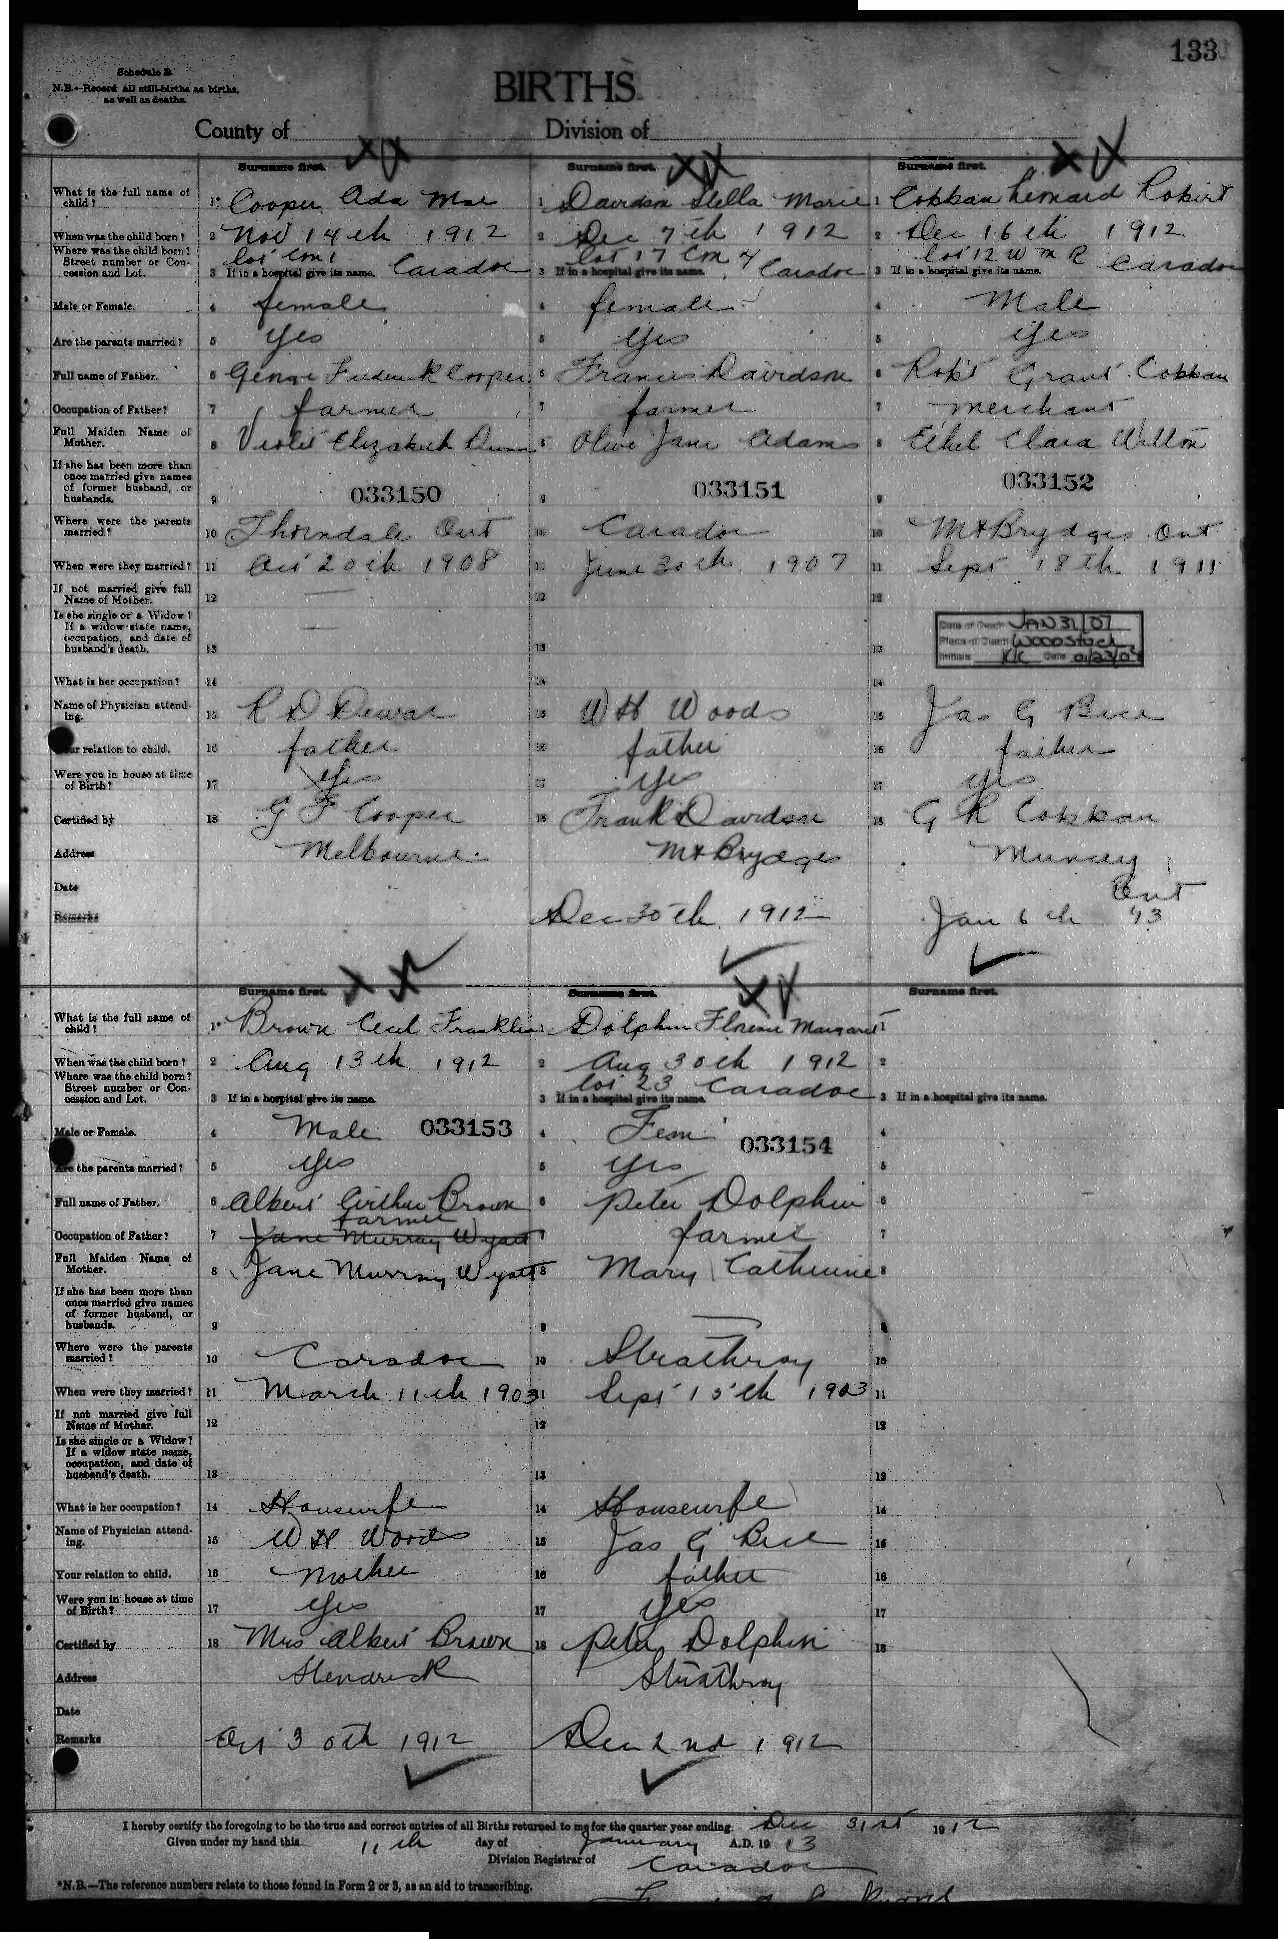 133
Schedule B
N.B.—Record all still-births as births,
as well as deaths.
BIRTHS
County of
Division of
Surname first.
Surname first.
Surname first.
What is the full name of child?
1* Cooper Ada Mae
1 Davidson Stella Marie
1 Cobban Leonard Robert
When was the child born?
2 Nov 14th 1912
2 Dec 7th 1912
2 Dec 16th 1912
Where was the child born? Street number or Concession and Lot.
lot Con 1
3 If in a hospital give its name. Caradoc
lot 17 Con 4
3 If in a hospital give its name. Caradoc
lot 12 W M R
3 If in a hospital give its name. Caradoc
Male or Female.
4 female
4 female
4 Male
Are the parents married?
5 Yes
5 Yes
5 Yes
Full name of Father.
6 George Frederick Cooper
6 Francis Davidson
6 Robt Grant Cobban
Occupation of Father?
7 farmer
7 farmer
7 merchant
Full Maiden Name of Mother.
8 Violet Elizabeth Dunn
8 Olive Jane Adams
8 Ethel Clara Wilton
If she has been more than once married give names of former husband, or husbands.
9 033150
9 033151
9 033152
Where were the parents married?
10 Thorndale Ont
10 Caradoc
10 Mt Brydges Ont
When were they married?
11 Oct 20th 1908
11 June 30th 1907
11 Sept 18th 1911
If not married give full Name of Mother.
12 —
12
12
Is she single or a Widow? If a widow state name, occupation, and date of husband's death.
13 —
13
13
Date of Death JAN 31/07
Place of Death WOODSTOCK
Initials KK Date
What is her occupation?
14
14
14
Name of Physician attending.
15 R D Dewar
15 W H Woods
15 Jas G Bice
Your relation to child.
16 father
16 father
16 father
Were you in house at time of Birth?
17 Yes
17 Yes
17 yes
Certified by
18 G F Cooper
18 Frank Davidson
18 G R Cobban
Address
Melbourne
Mt Brydges
Muncey
Ont
Date
Remarks
Dec 30th 1912
Jan 6th 13
Surname first.
Surname first.
Surname first.
What is the full name of child?
1* Brown Cecil Franklin
1 Dolphin Florence Margaret
1
When was the child born?
2 Aug 13th 1912
2 Aug 30th 1912
2
Where was the child born? Street number or Concession and Lot.
3 If in a hospital give its name.
lot 23 Caradoc
3 If in a hospital give its name.
3 If in a hospital give its name.
Male or Female.
4 Male 033153
4 Fem 033154
4
Are the parents married?
5 Yes
5 Yes
5
Full name of Father.
6 Albert Arthur Brown
6 Peter Dolphin
6
Occupation of Father?
farmer
7 Jane Murray Wyatt
7 farmer
7
Full Maiden Name of Mother.
8 Jane Murray Wyatt
8 Mary Catherine
8
If she has been more than once married give names of former husband, or husbands.
9
9 —
9
Where were the parents married?
10 Caradoc
10 Strathroy
10
When were they married?
11 March 11th 1903
11 Sept 15th 1903
11
If not married give full Name of Mother.
12
12
12
Is she single or a Widow? If a widow state name, occupation, and date of husband's death.
13
13
13
What is her occupation?
14 Housewife
14 Housewife
14
Name of Physician attending.
15 W H Woods
15 Jas G Bice
15
Your relation to child.
16 Mother
16 father
16
Were you in house at time of Birth?
17 Yes
17 Yes
17
Certified by
18 Mrs Albert Brown
18 Peter Dolphin
18
Address
Hendrick
Strathroy
Date
Remarks
Oct 30th 1912
Dec 2nd 1912
I hereby certify the foregoing to be the true and correct entries of all Births returned to me for the quarter year ending Dec 31st 1912
Given under my hand this 11th day of January A.D. 1913
Division Registrar of Caradoc
*N.B.—The reference numbers relate to those found in Form 2 or 3, as an aid to transcribing.